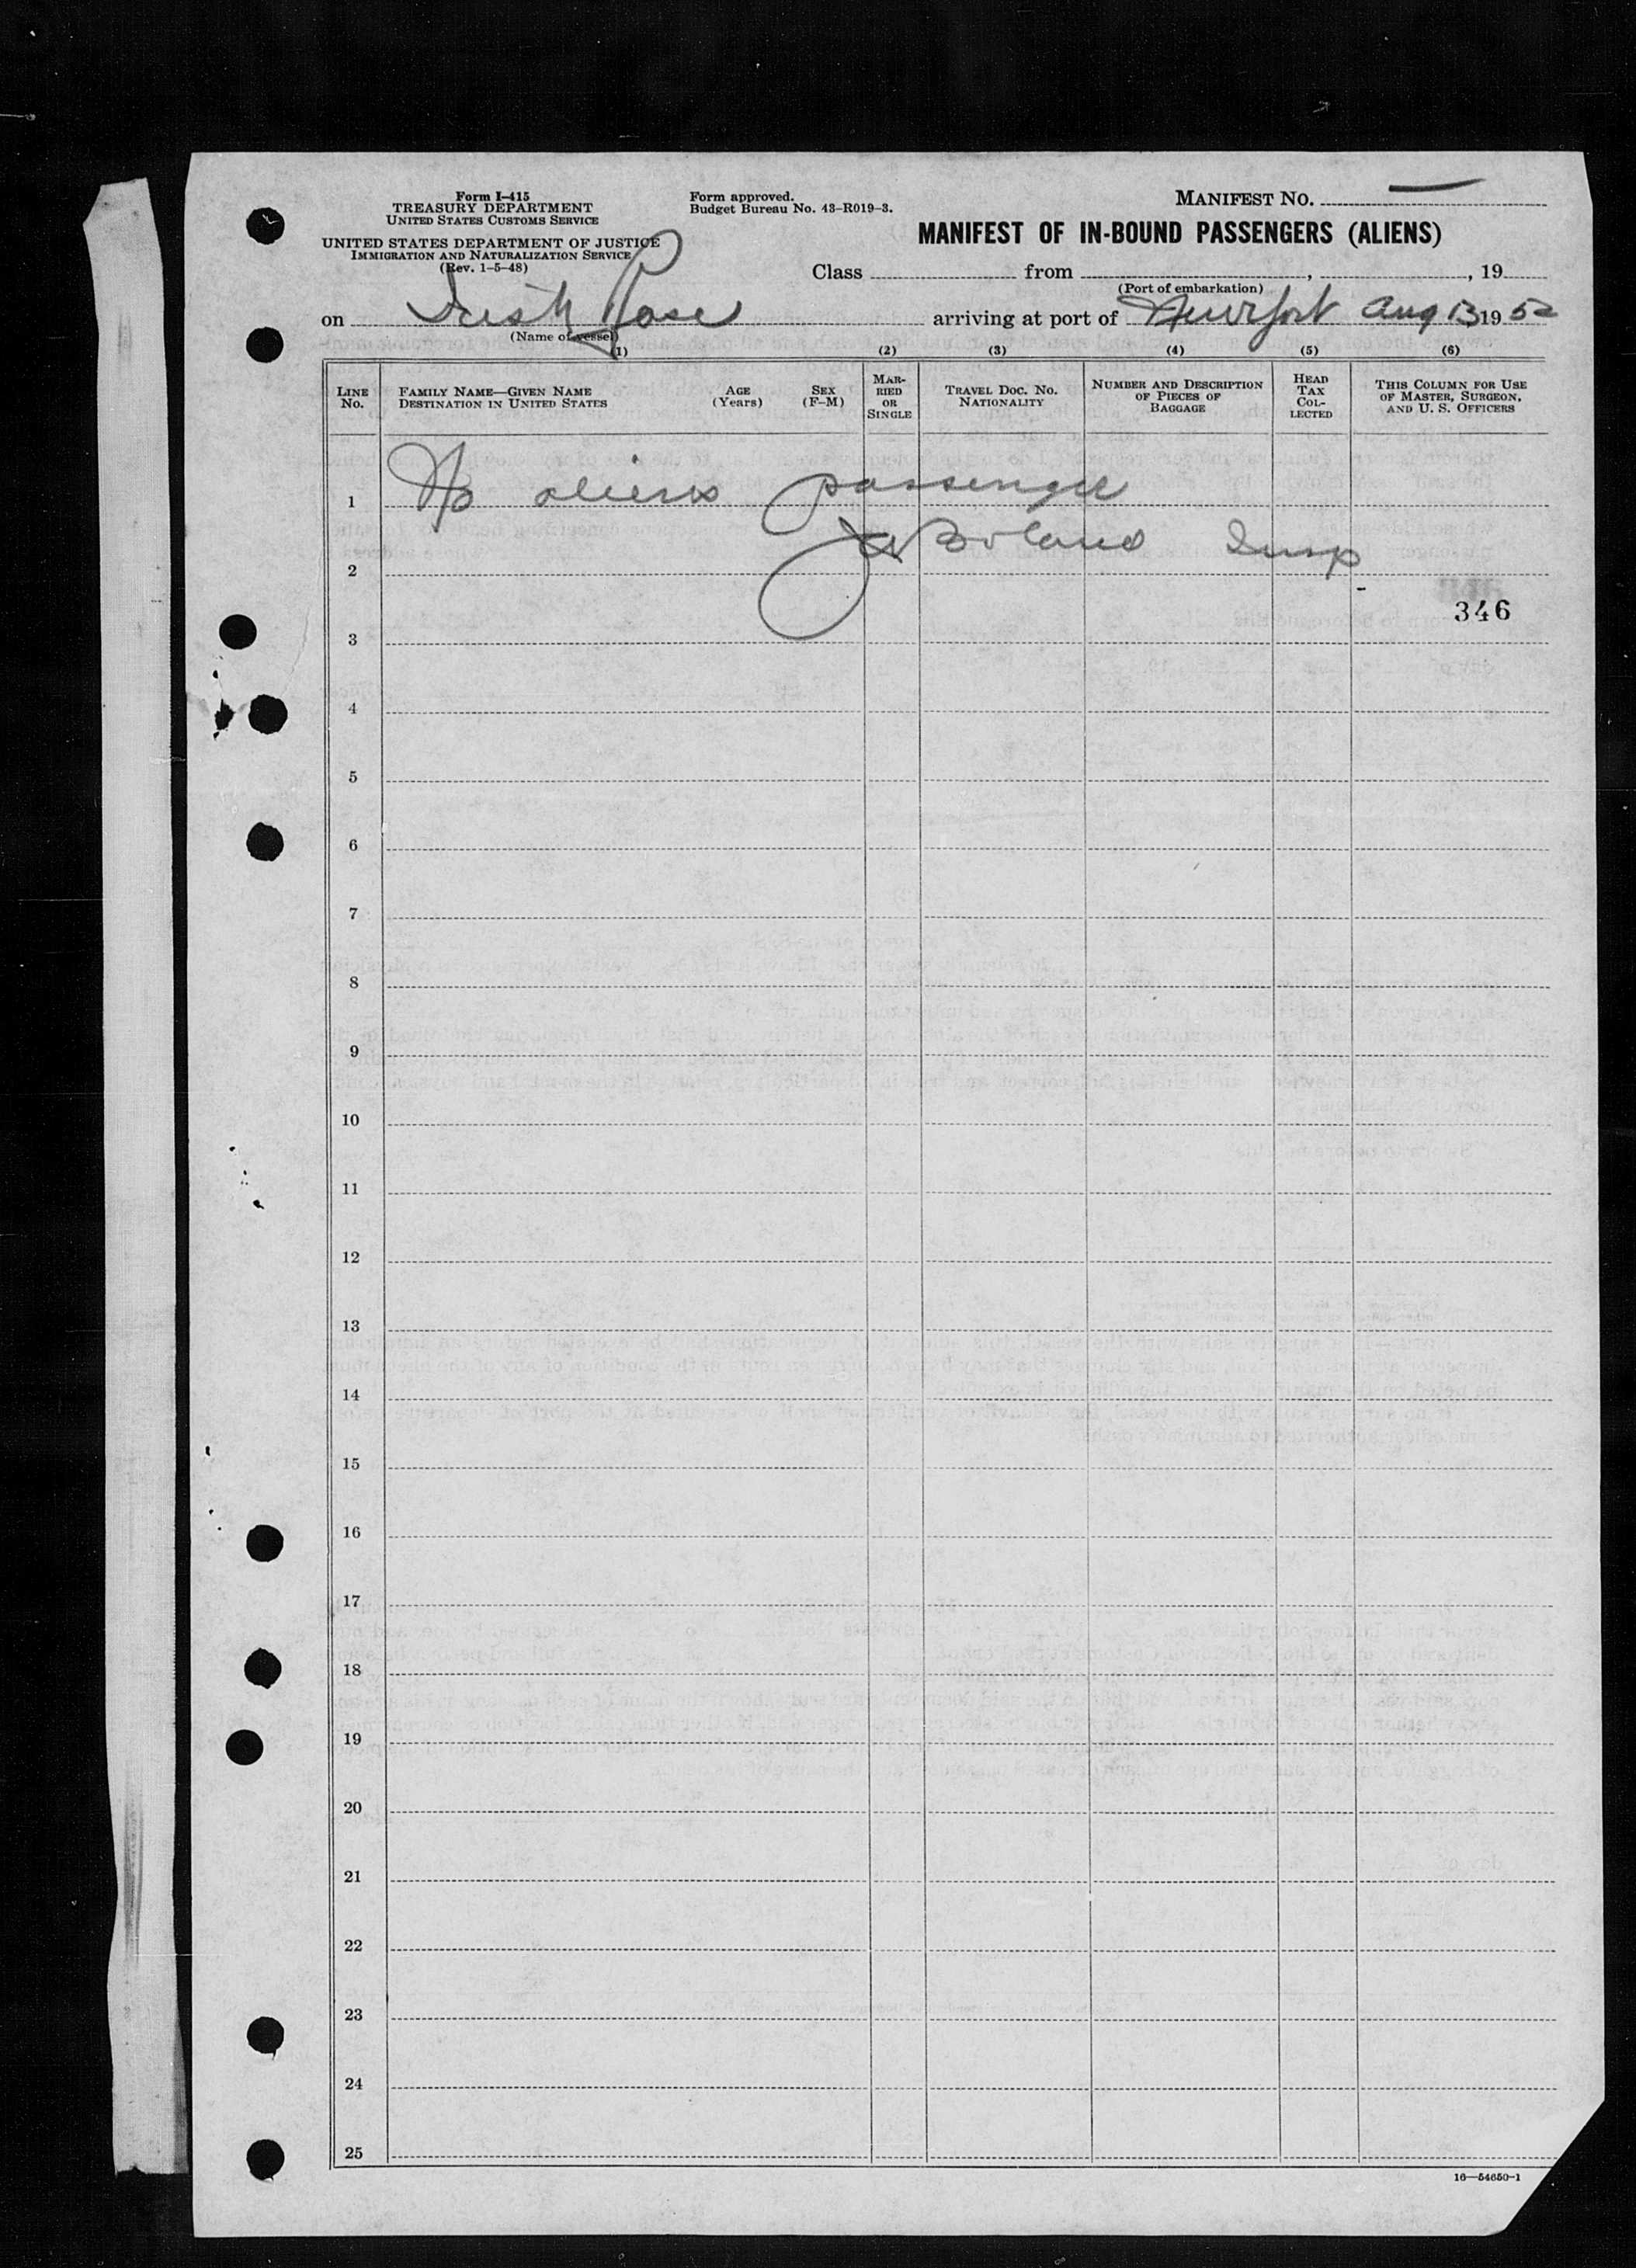 Form I-415
TREASURY DEPARTMENT
UNITED STATES CUSTOMS SERVICE
UNITED STATES DEPARTMENT OF JUSTICE
IMMIGRATION AND NATURALIZATION SERVICE
(Rev. 1-5-48)
Form approved.
Budget Bureau No. 43-R019-3.
MANIFEST NO.
MANIFEST OF IN-BOUND PASSENGERS (ALIENS)
Class from , , 19
(Port of embarkation)
on Irish Rose arriving at port of Newport Aug 13 1952
(Name of vessel)
(1) (2) (3) (4) (5) (6)
LINE No.
FAMILY NAME—GIVEN NAME
DESTINATION IN UNITED STATES
AGE (Years)
SEX (F-M)
MARRIED OR SINGLE
TRAVEL DOC. NO.
NATIONALITY
NUMBER AND DESCRIPTION OF PIECES OF BAGGAGE
HEAD TAX COLLECTED
THIS COLUMN FOR USE OF MASTER, SURGEON, AND U. S. OFFICERS
1 No aliens passenger
Boland Insp
2
346
3
4
5
6
7
8
9
10
11
12
13
14
15
16
17
18
19
20
21
22
23
24
25
16—54650-1